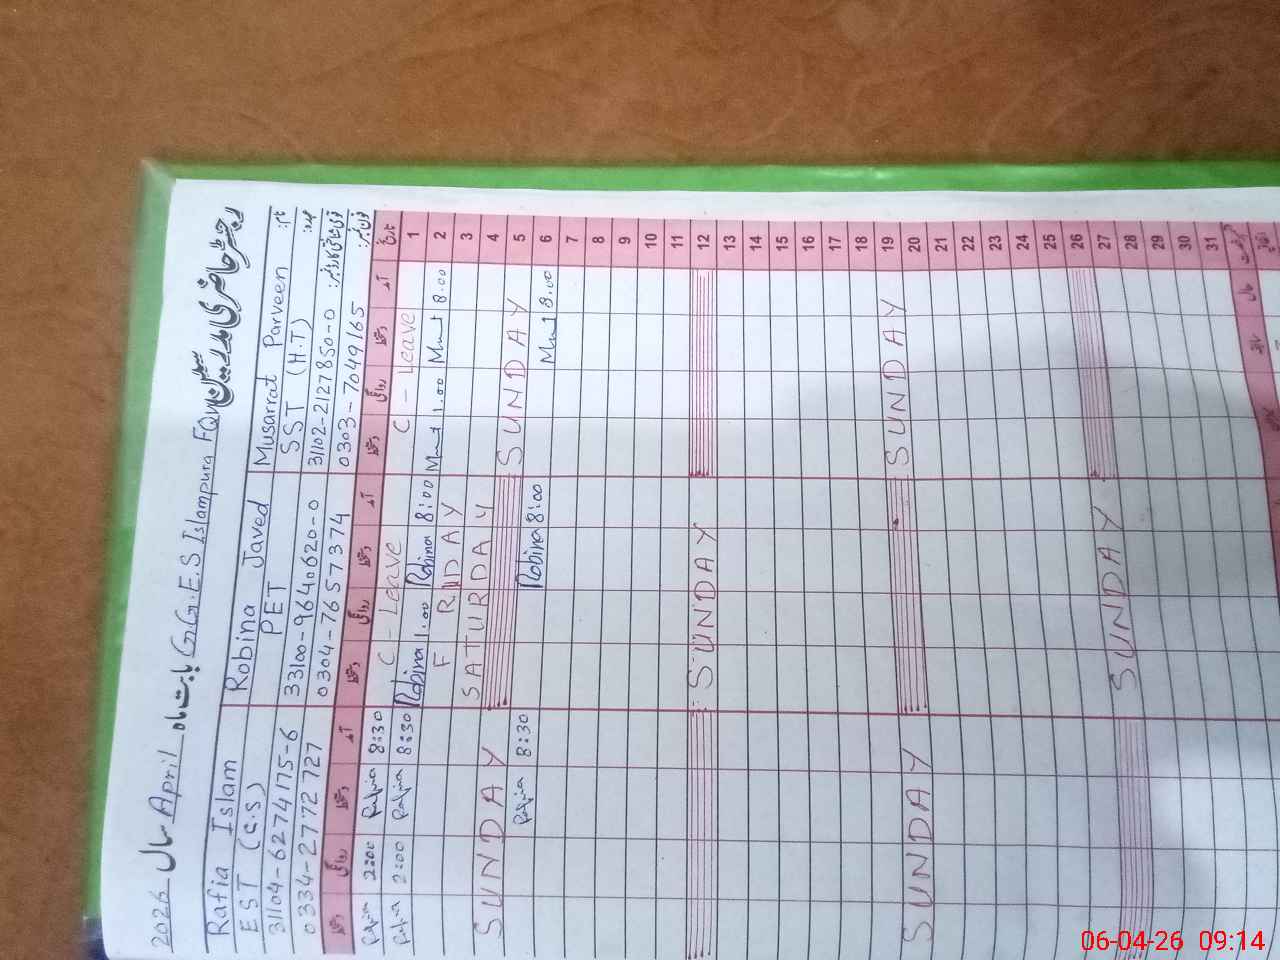 رجسٹر حاضری مدرسین GG.E.S Islampura FQW بابت ماہ April سال 2026
نام: Musarrat Parveen
Robina Javed
Rafia Islam
عہدہ: SST (H.T)
PET
EST (C.S)
31102-2127850-0
33100-9640620-0
31104-6274175-6
فون نمبر: 0303-7049165
0304-7657374
0334-2772727
تاریخ آمد دستخط روانگی دستخط آمد دستخط روانگی دستخط آمد دستخط روانگی دستخط
1 C - Leave C - Leave 8:30 Rafia 2:00 Rafia
2 8.00 1.00 8:00 Robina 1.00 Robina 8:30 Rafia 2:00 Rafia
3 FRIDAY
4 SATURDAY
5 SUNDAY SUNDAY
6 8.00 8:00 Robina 8:30 Rafia
7
8
9
10
11
12 SUNDAY
13
14
15
16
17
18
19 SUNDAY SUNDAY
20
21
22
23
24
25
26 SUNDAY
27
28
29
30
31
06-04-26 09:14